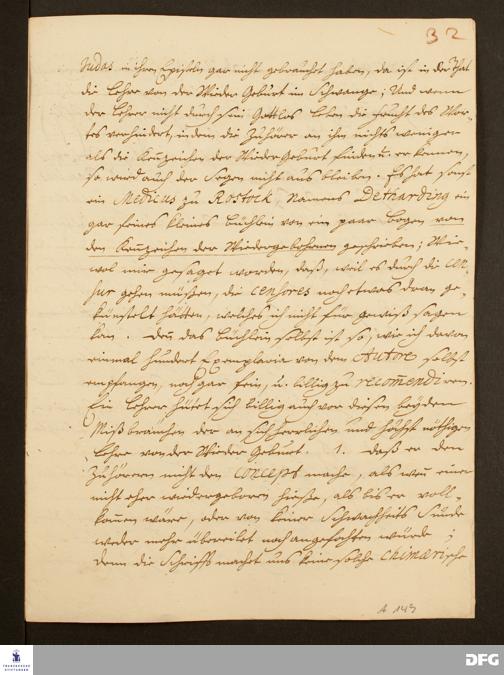 32
Judas in ihren Episteln gar nicht gebrauchet haben, da ist in der That
die Lehre von der Wieder Geburt im Schwange; Und wenn
der Lehrer nicht durch sein Gottlos Leben die Frucht des Wor-
tes verhindert, indem die Zuhörer an ihm nichts weniger
als die Kennzeichen der Wieder Geburt finden u. erkennen,
so wird auch der Segen nicht aus bleiben. Es hat sonst
ein Medicus zu Rostock, Namens Detharding ein
gar feines kleines büchlein von ein paar Bogen von
den Kennzeichen der Wiedergebohrnen geschrieben; Wie-
wol mir gesaget worden, daß, weil es durch die Cen-
sur gehen müßen, die Censores noch etwas dran ge-
künstelt hätten, welches ich nicht für gewiß sagen
kan. Denn das büchlein selbst ist so, wie ich davon
einmal hundert Exemplaria von dem Autore selbst
empfangen, noch gar fein, u. billig zu recommendiren.
Ein Lehrer hütet sich billig auch vor diesen beyden
Mißbräuchen der an sich herrlichen und höchst nöthigen
Lehre von der Wieder Geburt. 1. daß er den
Zuhörern nicht den Concept mache, als wenn einer
nicht eher wiedergeboren hieße, als bis er voll-
kommen wäre, oder von keiner Schwachheits Sünde
weder mehr übereilet noch angefochten würde;
denn die Schrifft machet uns keine solche Chimærische
A 143
FRANCKESCHE
STIFTUNGEN
DFG